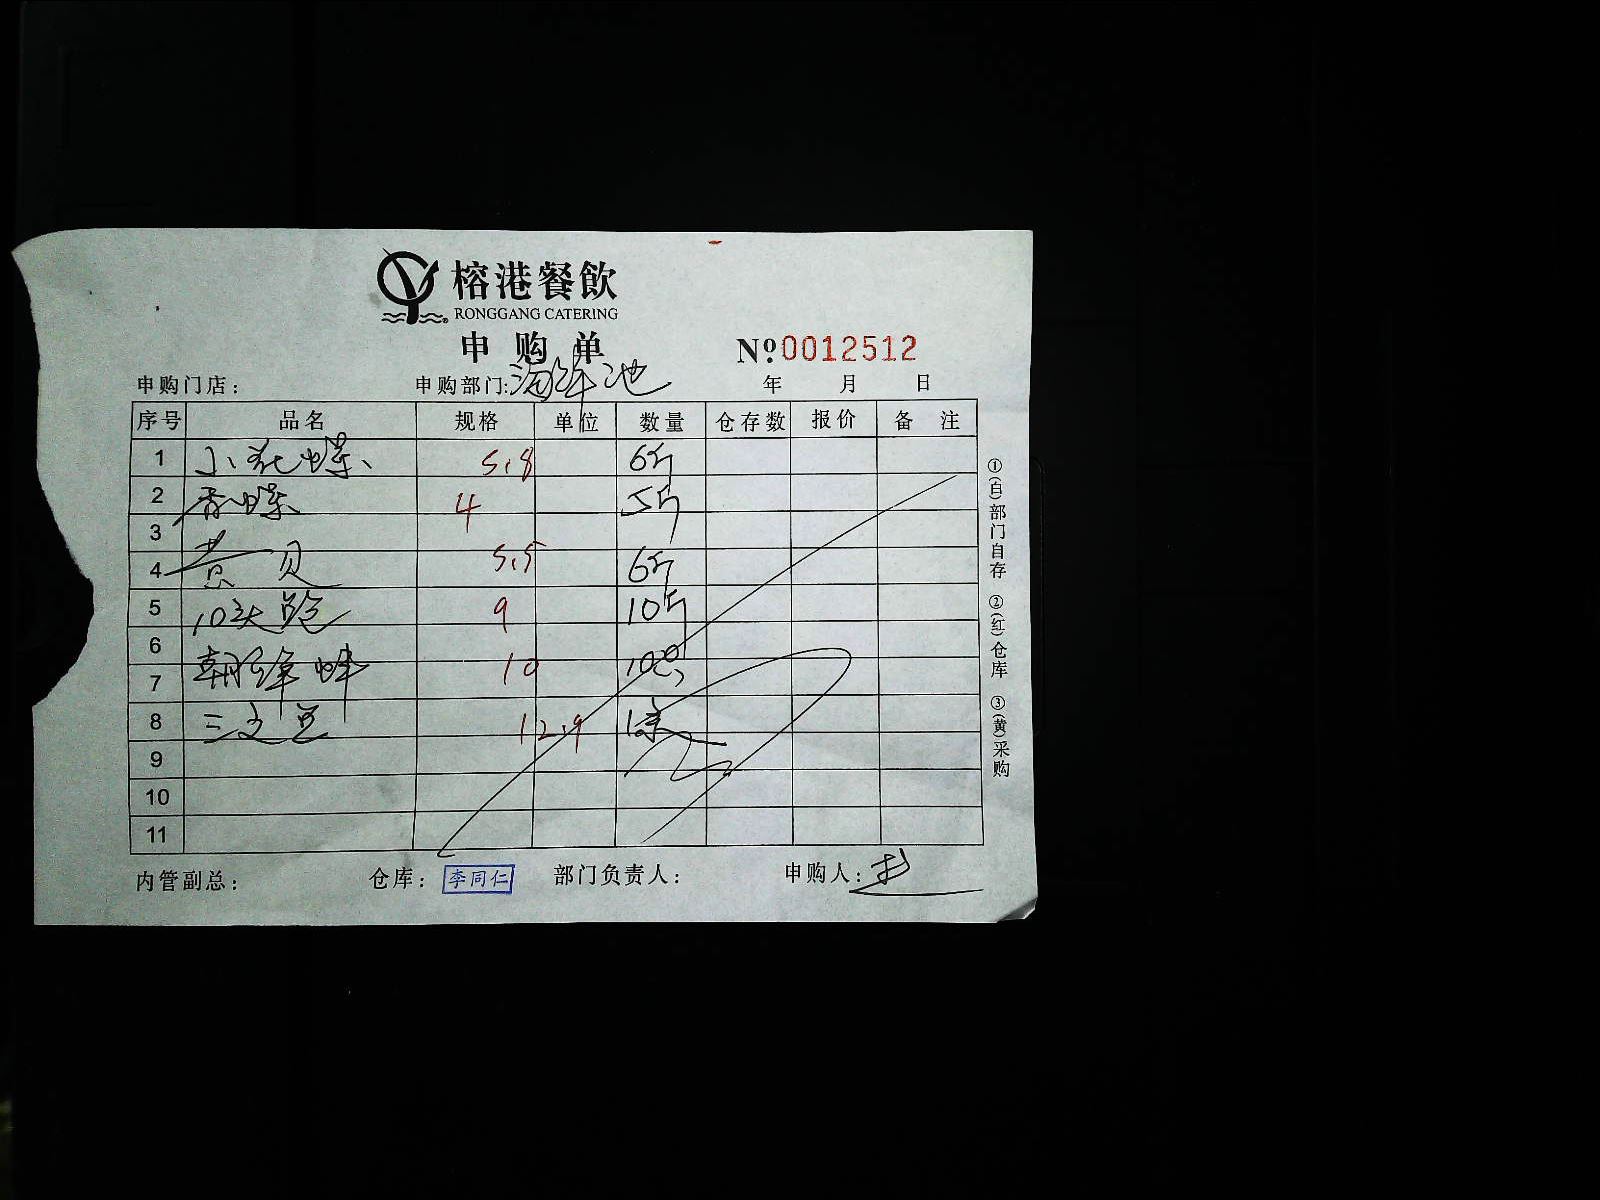 榕港餐飲
RONGGANG CATERING
申购单
№0012512
申购门店: 申购部门:海鲜池 年 月 日
序号 品名 规格 单位 数量 仓存数 报价 备注
1 小花螺 5.8 6斤
2 香螺 4 5斤
3
4 黄贝 5.5 6斤
5 10头鲍 9 10斤
6
7 10 10只
8 三文鱼 12.9 1条
9
10
11
①(白)部门自存 ②(红)仓库 ③(黄)采购
内管副总: 仓库: 李同仁 部门负责人: 申购人: